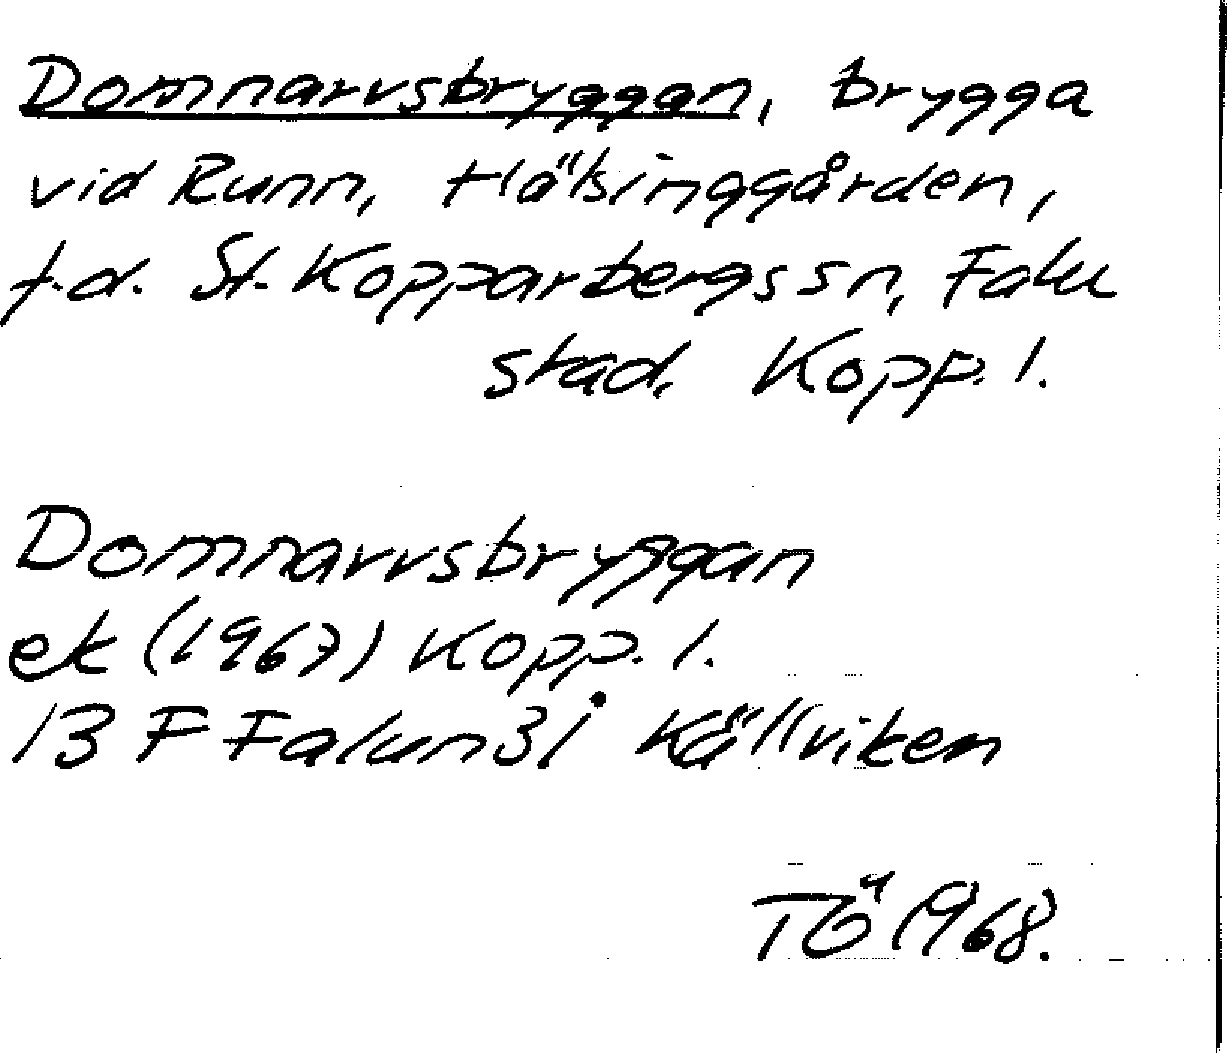 Domnarvsbryggan, brygga
vid Runn, Hälsinggården,
f.d. St. Kopparbergs sn, Falu
stad, Kopp. l.
Domnarvsbryggan
ek (1967) Kopp. l.
13 F Falun 3 i Källviken
TÖ 1968.